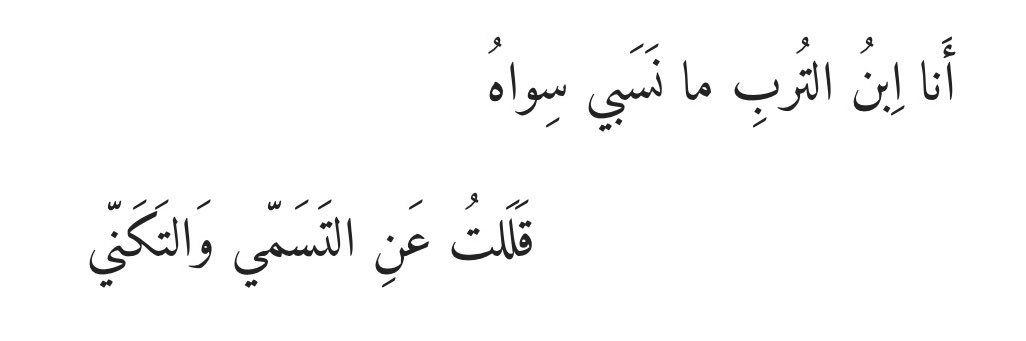 أَنا اِبنُ التُربِ ما نَسَبي سِواهُ
قَلَلتُ عَنِ التَسَمّي وَالتَكَنّي